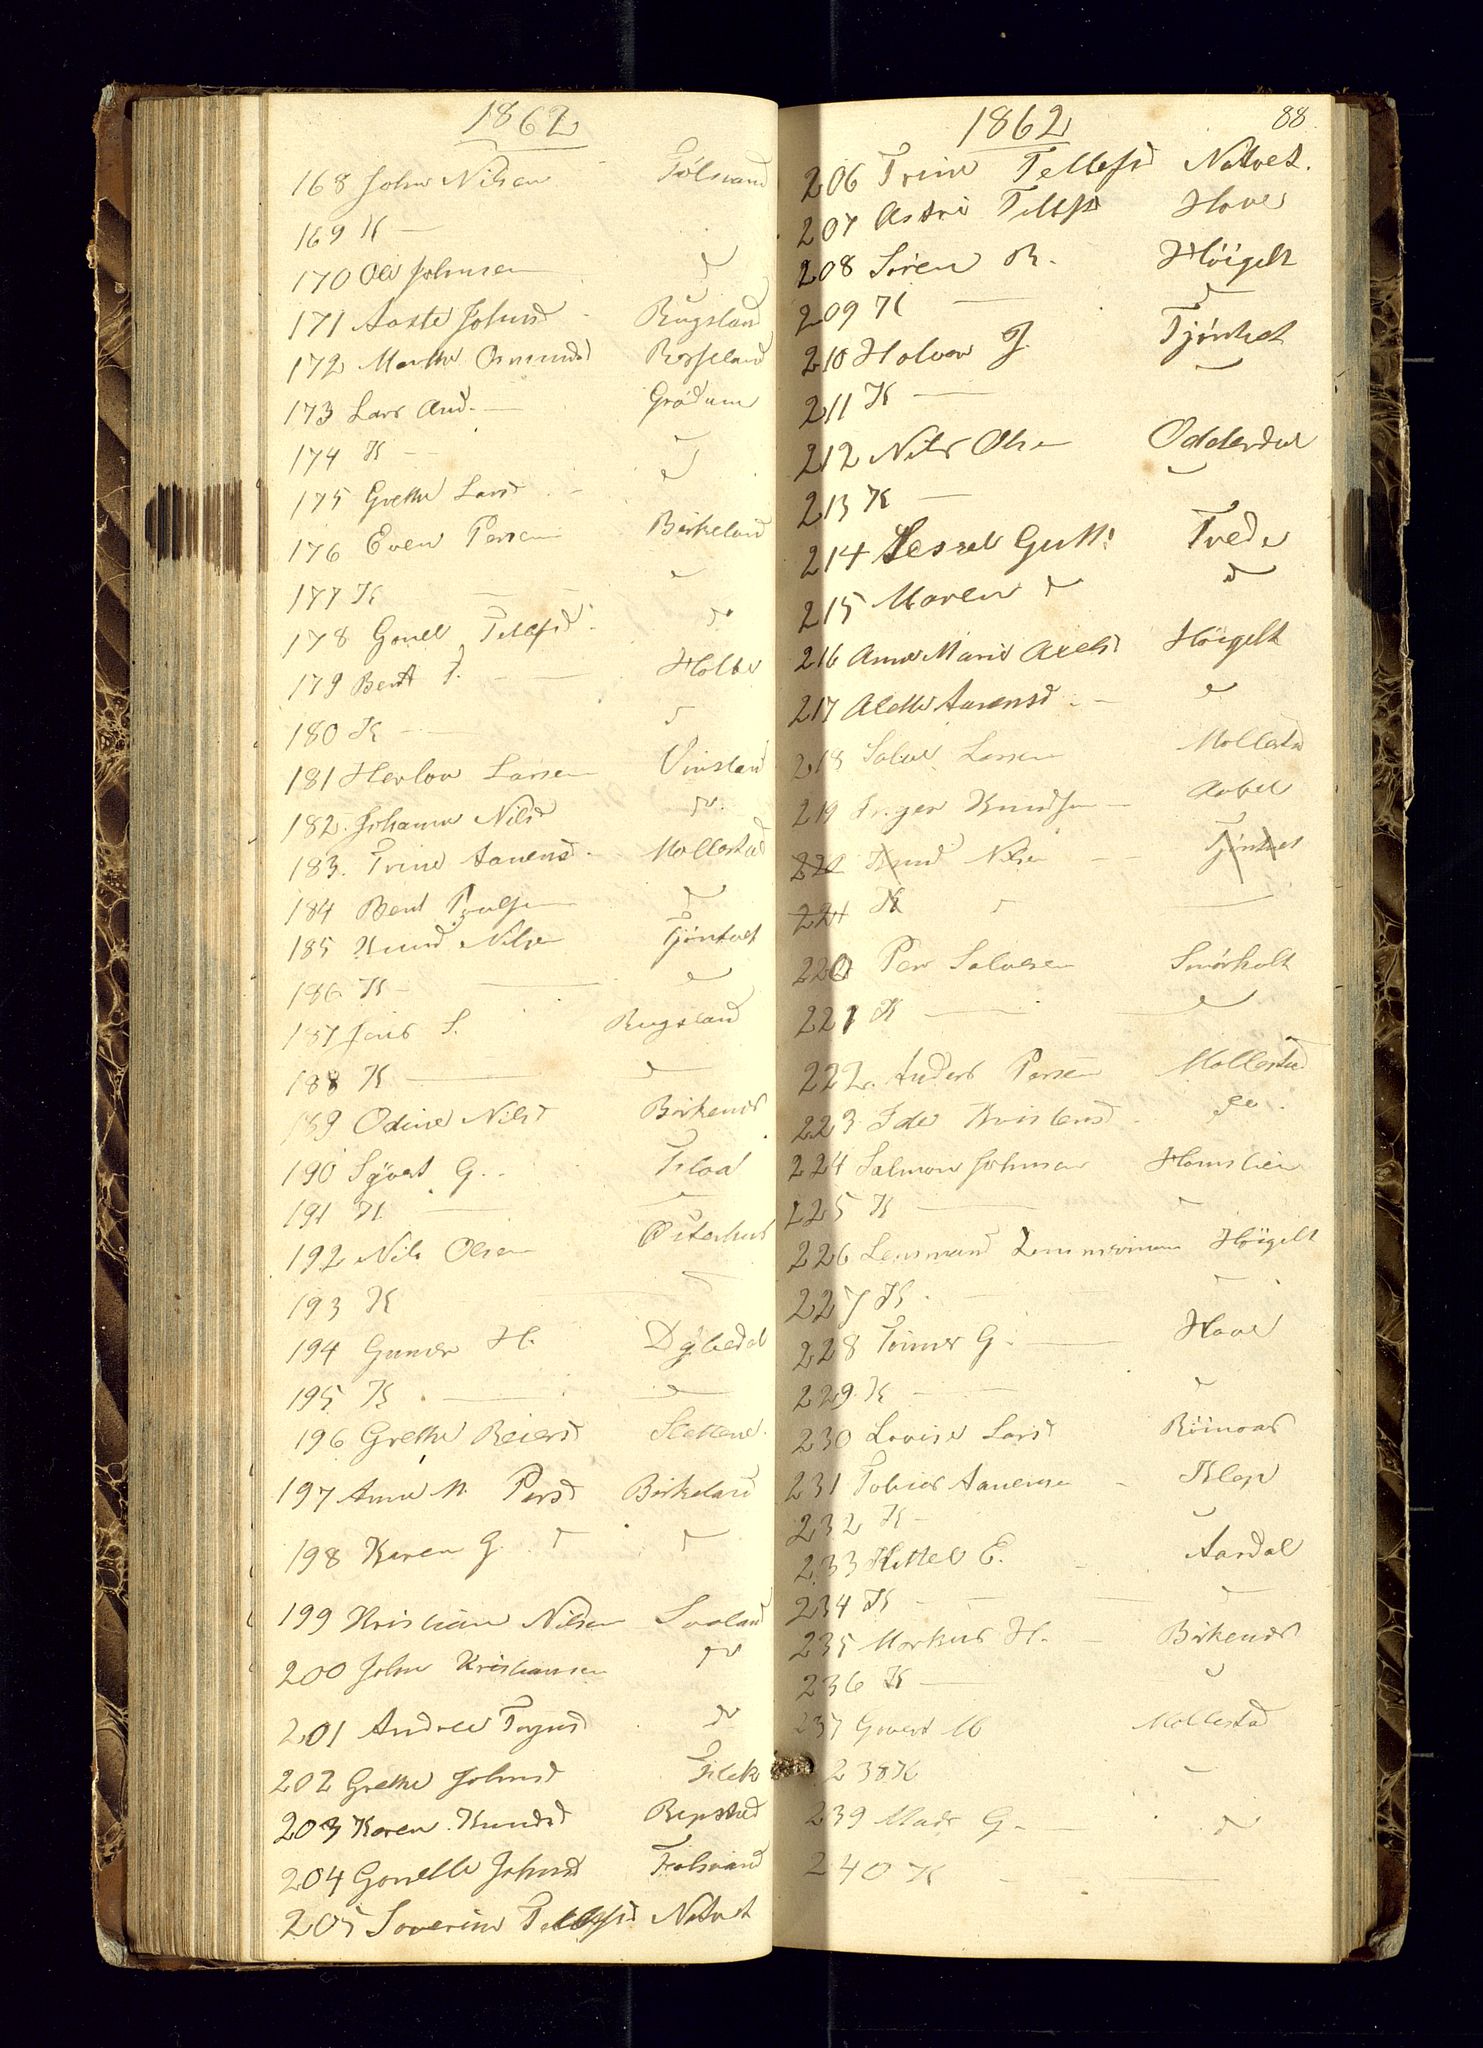 1862
168 John Nilsen Følsvand
169 K —
170 Ole Johnsen d
171 Aaste Johnsd Rugsland
172 Marthe Osmundsd Rosseland
173 Lars And. — Grødum
174 K — d
175 Grethe Larsd. — d
176 Even Persen Birkeland
177 K — —
178 Gonel Tellefsd. do
179 Bent T. — — Holte
180 K — d
181 Herlov Larsen Vinsland
182. Johanne Nilsd do.
183. Trine Aanensd. Mollestad
184 Bent Poulsen d
185 Knud Nilsen Tjöntvet
186 K — —
187 Jens S. Rugsland
188 K —
189 Odine Nilsd Birkenes
190 Syvert G. Floed
191 K —
192 Nils Olsen Østerhus
193 K
194 Guner H. Dybedal
195 K — —
196 Grethe Reiersd Slettene.
197 Anne M. Persd Birkeland
198 Karen G. d d
199 Kristian Nilsen Svaland
200 John Kristiansen do
201 Andrea Terjusd do
202 Grethe Johnsd Flek
203 Karen Knudsd Repstad
204 Gonelle Johnsd Følsvand
205 Severine Tellefsd Natvet
1862 88.
206 Trine Tellefsd Natvet.
207 Astri Tellefsd Hove
208 Sören R. Höigilt
209 K — d
210 Halvor J. Tjöntvet
211 K —
212 Nils Olsen Oddersdal
213 K —
214 Sessel Gutt: Tvede
215 Maren d d
216 Anne Marie Axelsd Höigilt
217 Alette Aanensd. —
218 Salve Larsen Mollestad
219 Inger Knudsen — Aabel
222 Knud Nilsen — — Tjöntvet
221 K d —
220 Per Salvesen Smörholt
221 K —
222. Anders Persen Mollestad
223 Ide Kristensd. do.
224 Salmon Johnsen Homslien
225 K —
226 Lensmand Zimmermann Höigilt
227 K. —
228 Tomes G. — Hove
229. K — —
230 Lovise Larsd Röinaas
231 Tobias Aanensen — Klep
232 K —
233 Kittel E. Aasdal
234 K — —
235 Markus H. — Birkenes
236 K —
237 Govert M Mollestad
238 K
239 Mads G. — d
240 K — —